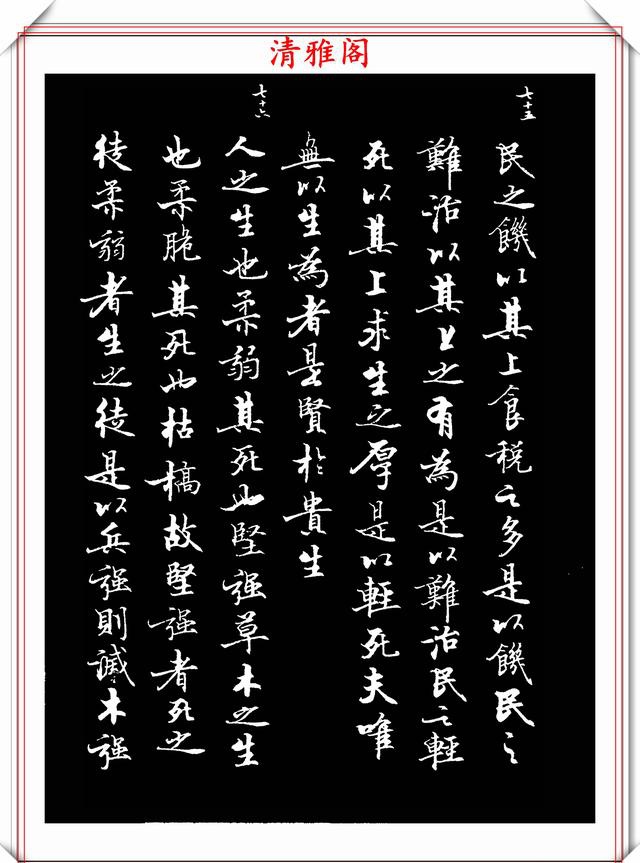 清雅阁
七十五
民之饑以其上食稅之多是以饑民之
難治以其上之有為是以難治民之輕
死以其上求生之厚是以輕死夫唯
無以生為者是賢於貴生
七十六
人之生也柔弱其死也堅强草木之生
也柔脆其死也枯槁故堅强者死之
徒柔弱者生之徒是以兵强則滅木强